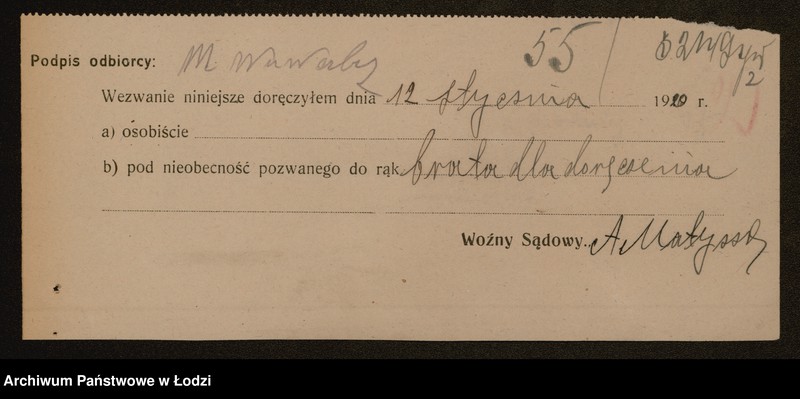 55
Podpis odbiorcy: M
Wezwanie niniejsze doręczyłem dnia 12 stycznia 1920 r.
a) osobiście
b) pod nieobecność pozwanego do rąk brata dla doręczenia
Woźny Sądowy A
Archiwum Państwowe w Łodzi